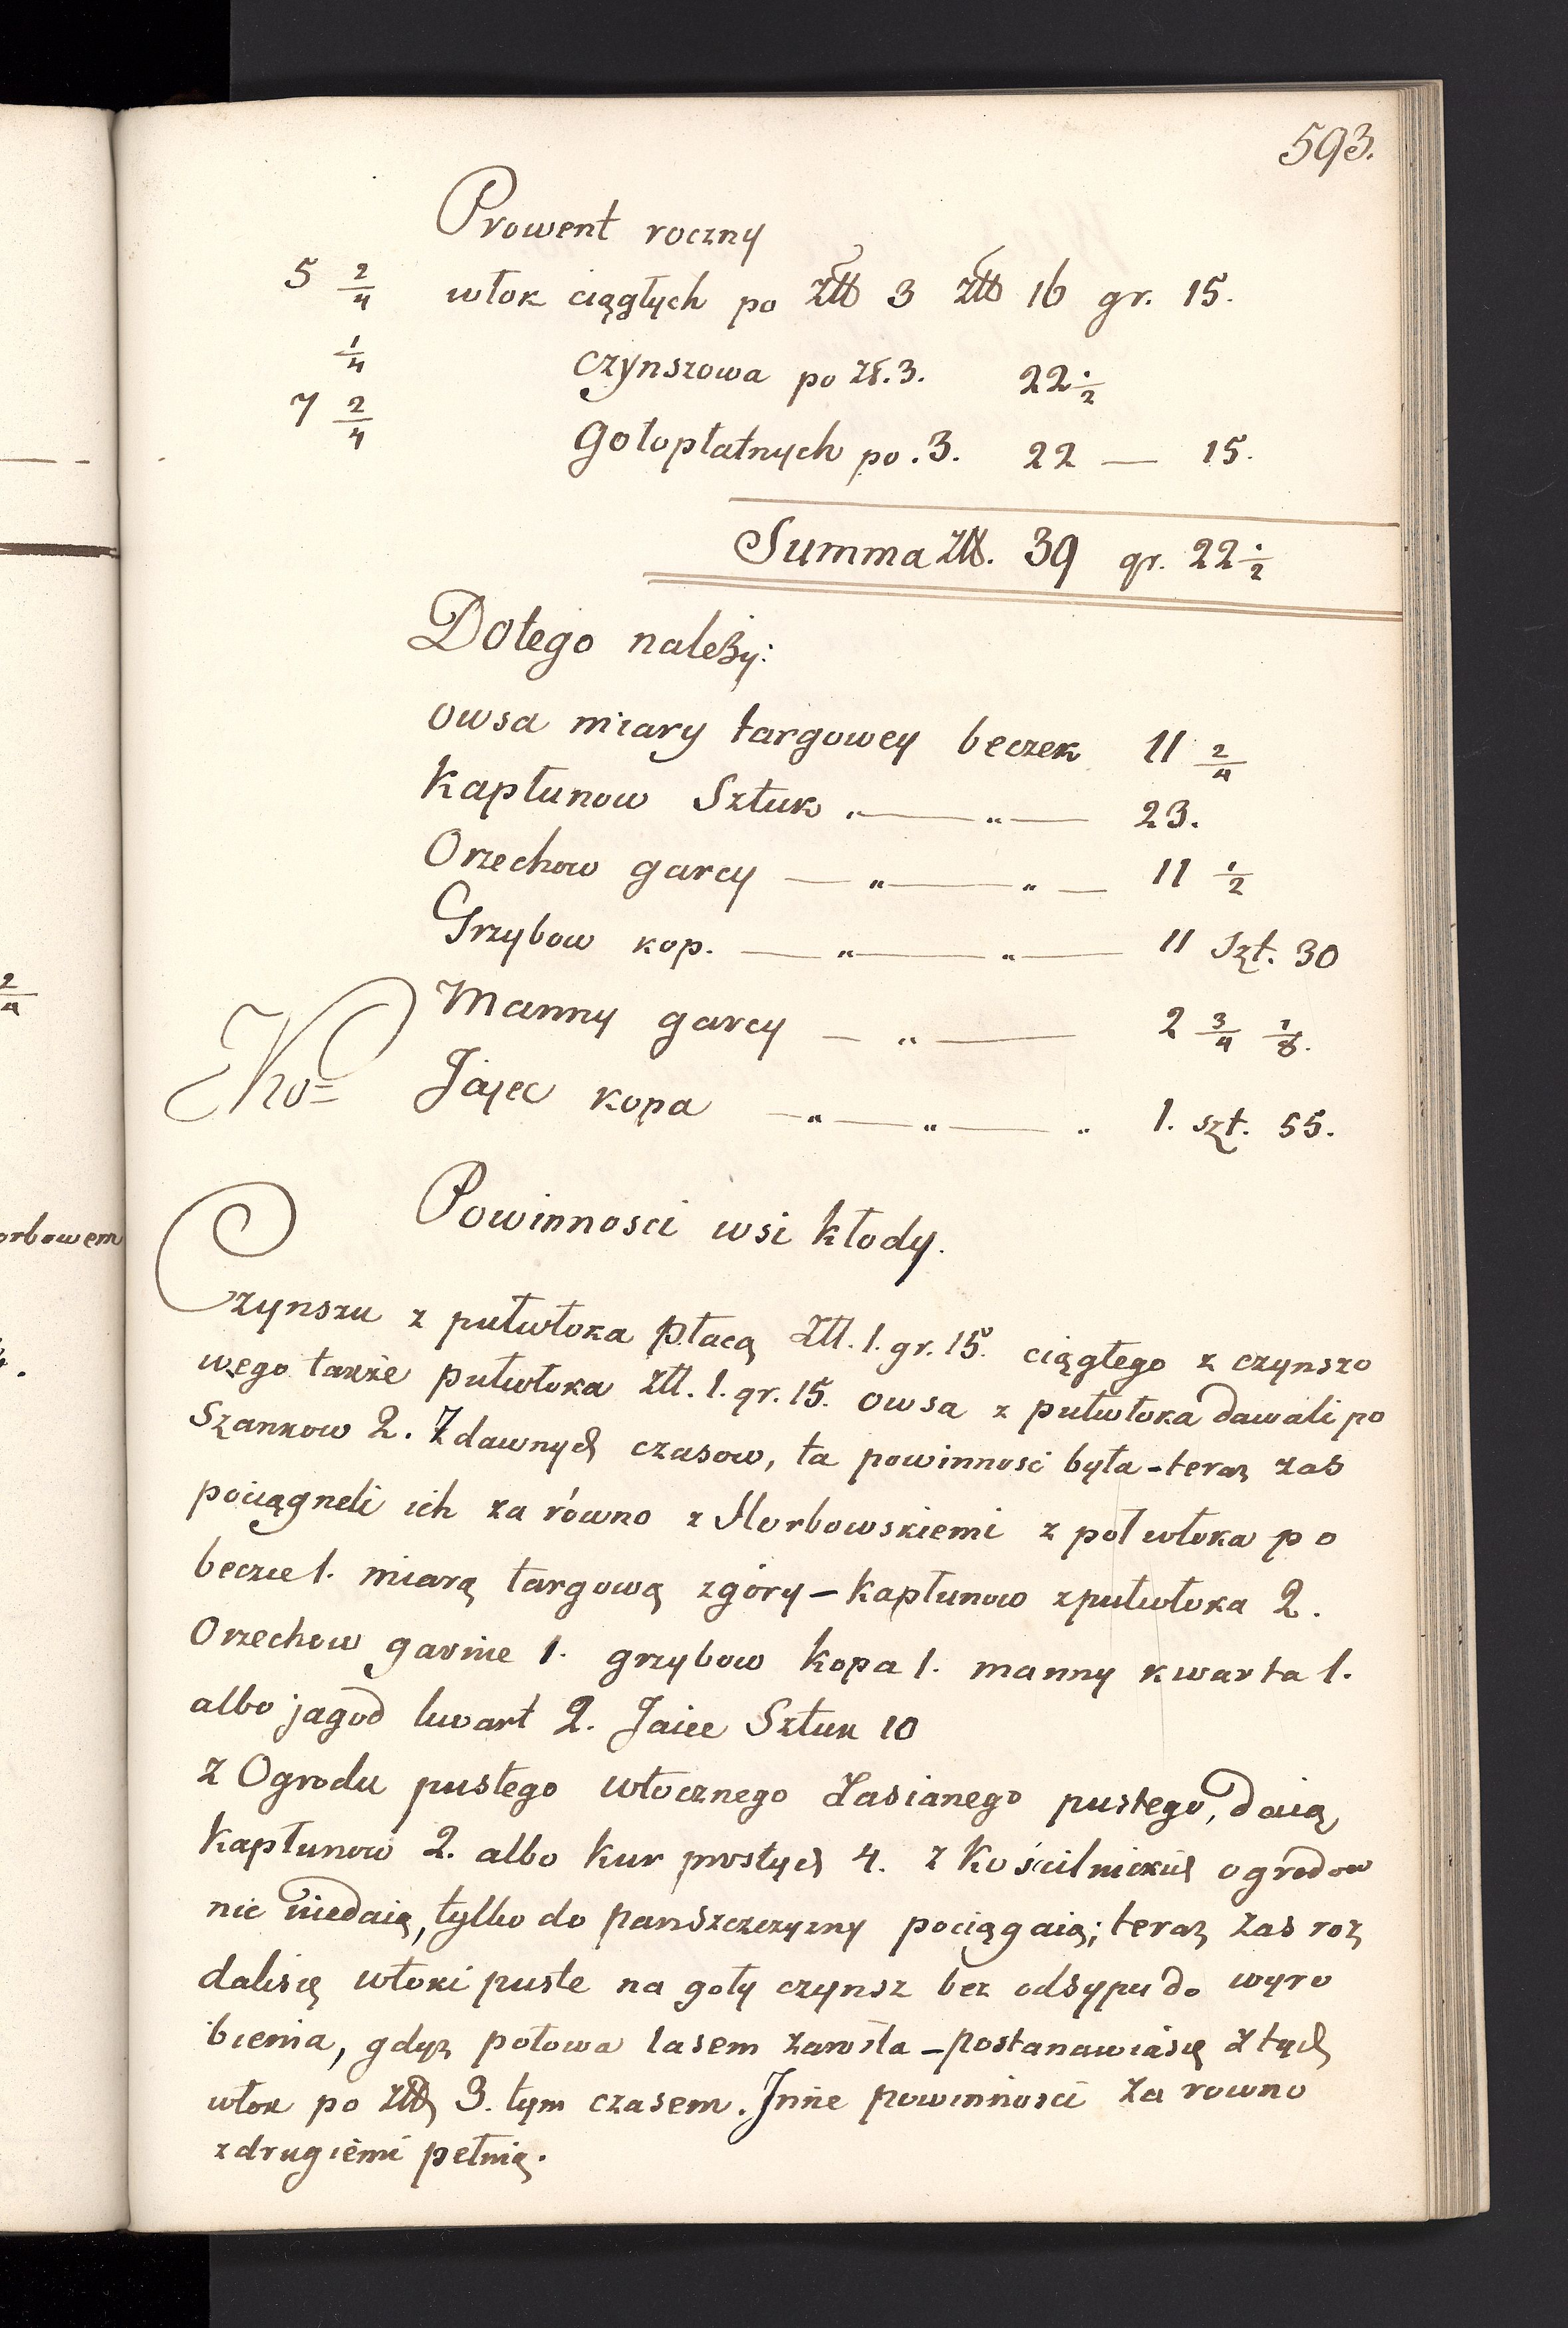 593.
Prowent roczny
5 2/4 włok ciągłych po złł 3 złł 16 gr. 15.
1/4 czynszowa po zł. 3. 22 1/2
7 2/4 gołopłatnych po . 3. 22 — 15.
Summa złł. 39 gr. 22 1/2
Dotego należy:
owsa miary targowey beczek 11 2/4
Kapłunow Sztuk „ — „ — 23.
Orzechow garcy — „ — „ — 11 1/2
Grzybow kop. — „ — „ — 11 Szt. 30
Manny garcy — „ — 2 3/4 1/8.
Jajec kopa — „ — „ — „ 1. szt. 55.
Powinnosci wsi kłody.
Czynszu z pułwłoka płacą złł. 1. gr. 15. ciągłego z czynszo
wego także pułwłoka złł. 1. gr. 15. owsa z pułwłoka dawali po
Szankow 2. Z dawnych czasow, ta powinnosć była - teraz zas
pociągneli ich za równo z Horbowskiemi z połwłoka po
beczce 1. miarą targową zgóry — kapłunow zpułwłoka 2.
Orzechow garnie 1. grzybow kopa 1. manny kwarta 1.
albo jagod kwart 2. Jaiec Sztuk 10
z Ogrodu pustego włocznego Zasianego pustego, daią
Kapłunow 2. albo kur prostych 4. z Kościelnickich ogrodow
nic niedaią, tylko do panszczczyzny pociągaią; teraz zas roz
dalisię włoki puste na goły czynsz bez odsypu do wyro
bienia, gdyz połowa lasem zarosła — postanawiasię z tych
włok po złł 3. tym czasem. Inne powinnosci za rowno
zdrugiemi pełnią.
orbowem